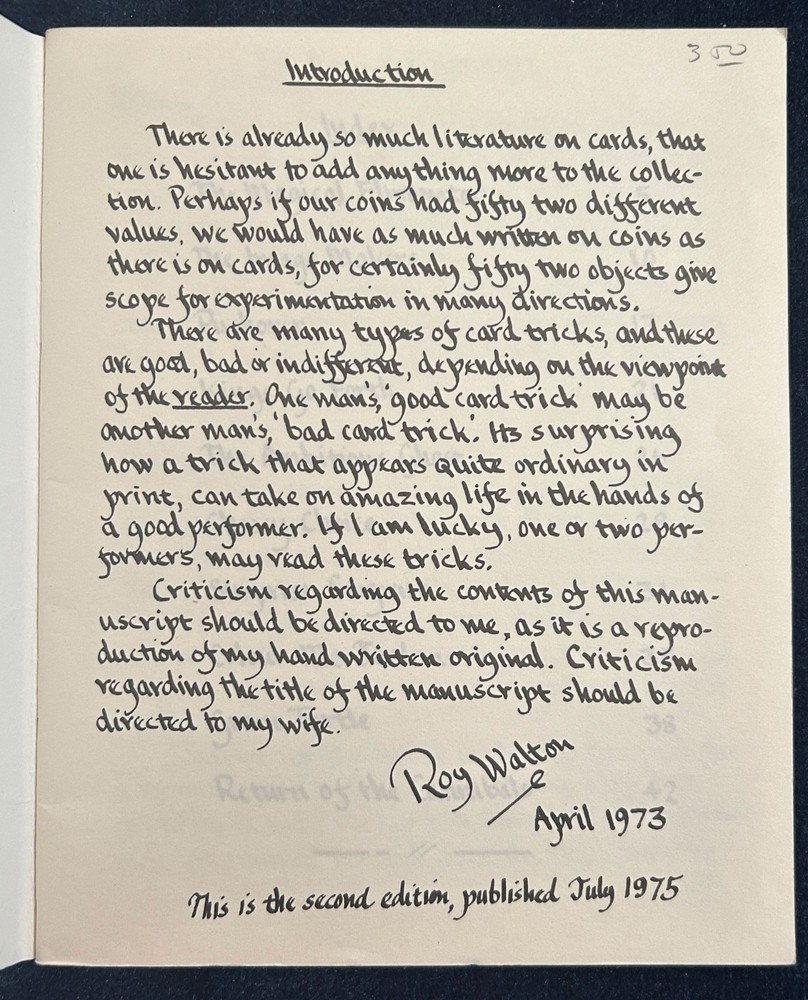 3 50
Introduction
There is already so much literature on cards, that
one is hesitant to add anything more to the collec-
tion. Perhaps if our coins had fifty two different
values, we would have as much written on coins as
there is on cards, for certainly fifty two objects give
scope for experimentation in many directions.
There are many types of card tricks, and these
are good, bad or indifferent, depending on the viewpoint
of the reader. One man's, 'good card trick' may be
another man's, 'bad card trick'. Its surprising
how a trick that appears quite ordinary in
print, can take on amazing life in the hands of
a good performer. If I am lucky, one or two per-
formers, may read these tricks.
Criticism regarding the contents of this man-
uscript should be directed to me, as it is a repro-
duction of my hand written original. Criticism
regarding the title of the manuscript should be
directed to my wife.
Roy Walton
April 1973
Return of the
38
42
This is the second edition, published July 1975